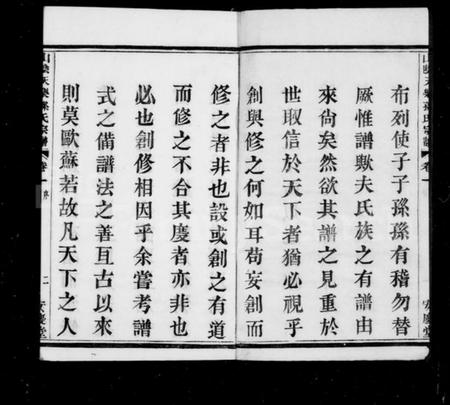 布列使子子孫孫有稽勿替
厥惟譜歟夫氏族之有譜由
來尙矣然欲其譜之見重於
世取信於天下者猶必視乎
創與修之何如耳苟妄創而
修之者非也設或創之有道
而修之不合其度者亦非也
必也創修相因乎余嘗考譜
式之備譜法之善亙古以來
則莫歐蘇若故凡天下之人
孫氏宗譜 卷一 序 二